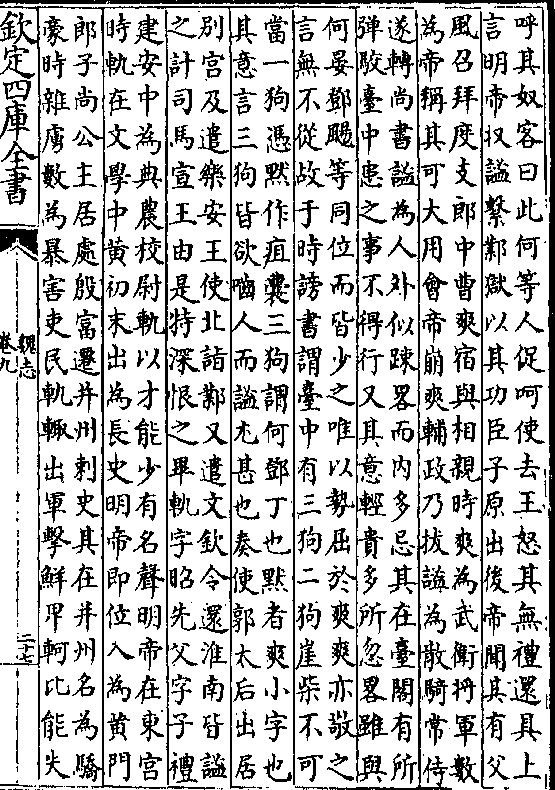 呼其奴客曰此何等人促呵使去王怒其無禮還具上
言明帝収謐繫鄴獄以其功臣子原出後帝聞其有父
風召拜度支郎中曹爽宿與相親時爽為武衛將軍數
為帝稱其可大用會帝崩爽輔政乃拔謐為散騎常侍
遂轉尚書謐為人外似疎畧而内多忌其在臺閣有所
弹駮臺中患之事不得行又其意輕貴多所忽畧雖與
何晏鄧颺等同位而皆少之唯以勢屈於爽爽亦敬之
言無不從故于時謗書謂臺中有三狗二狗崖柴不可
當一狗憑默作疽囊三狗謂何鄧丁也默者爽小字也
其意言三狗皆欲嚙人而謐尤甚也奏使郭太后出居
別宫及遣樂安王使北詣鄴又遣文欽令還淮南皆謐
之計司馬宣王由是特深恨之畢軌字昭先父字子禮
建安中為典農校尉軌以才能少有名聲明帝在東宫
時軌在文學中黄初末出為長史明帝即位入為黄門
郎子尚公主居處殷富遷并州刺史其在并州名為驕
豪時雜虜數為暴害吏民軌輙出軍擊鮮卑軻比能失
欽定四庫全書
魏志
卷九
二十七